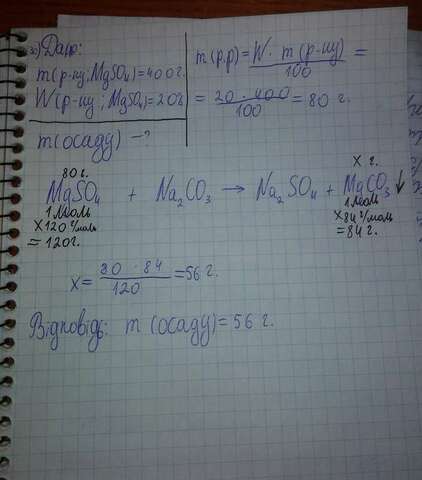 Дано:
m(р-ну; MgSO₄) = 400 г.
W(р-ну; MgSO₄) = 20%
m(осаду) - ?
m(р.р) = W · m(р-ну) / 100 =
= 20 · 400 / 100 = 80 г.
80 г. x г.
MgSO₄ + Na₂CO₃ → Na₂SO₄ + MgCO₃ ↓
1 моль 1 моль
x 120 г/моль x 84 г/моль
= 120 г. = 84 г.
x = 80 · 84 / 120 = 56 г.
Відповідь: m (осаду) = 56 г.